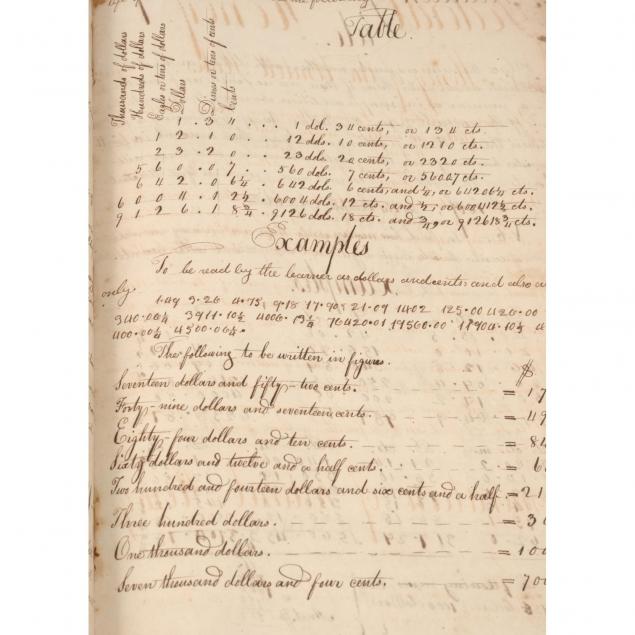 the following
Table
Thousands of dollars
Hundreds of dollars
Eagles or tens of dollars
Dollars
Dimes or tens of cents
Cents
1 . 3 4 . . 1 dol. 34 cents, or 134 cts.
1 2 . 1 0 . . 12 dols. 10 cents, or 1210 cts.
2 3 . 2 0 . . 23 dols. 20 cents, or 2320 cts.
5 6 0 . 0 7 . . 560 dols. 7 cents, or 56007 cts.
6 4 2 . 0 6¼ . . 642 dols. 6 cents, and ¼, or 64206¼ cts.
6 0 0 4 . 1 2½ . . 6004 dols. 12 cts. and ½, or 600412½ cts.
9 1 2 6 . 1 8¾ . . 9126 dols. 18 cts. and ¾, or 912618¾ cts.
Examples
To be read by the learner as dollars and cents; and also as
only.
1.49 3.26 4.75 9.18 17.90 21.09 14.02 125.00 426.00
340.06¼ 3911.10½ 4006.13¼ 76420.01 19560.00 18904.10½
400.00¼ 4300.06¼.
The following to be written in figures.
$
Seventeen dollars and fifty-two cents. = 17
Forty-nine dollars and seventeen cents. = 49
Eighty-four dollars and ten cents. = 84
Sixty dollars and twelve and a half cents. = 6
Two hundred and fourteen dollars and six cents and a half = 21
Three hundred dollars. = 30
One thousand dollars. = 100
Seven thousand dollars and four cents. = 700